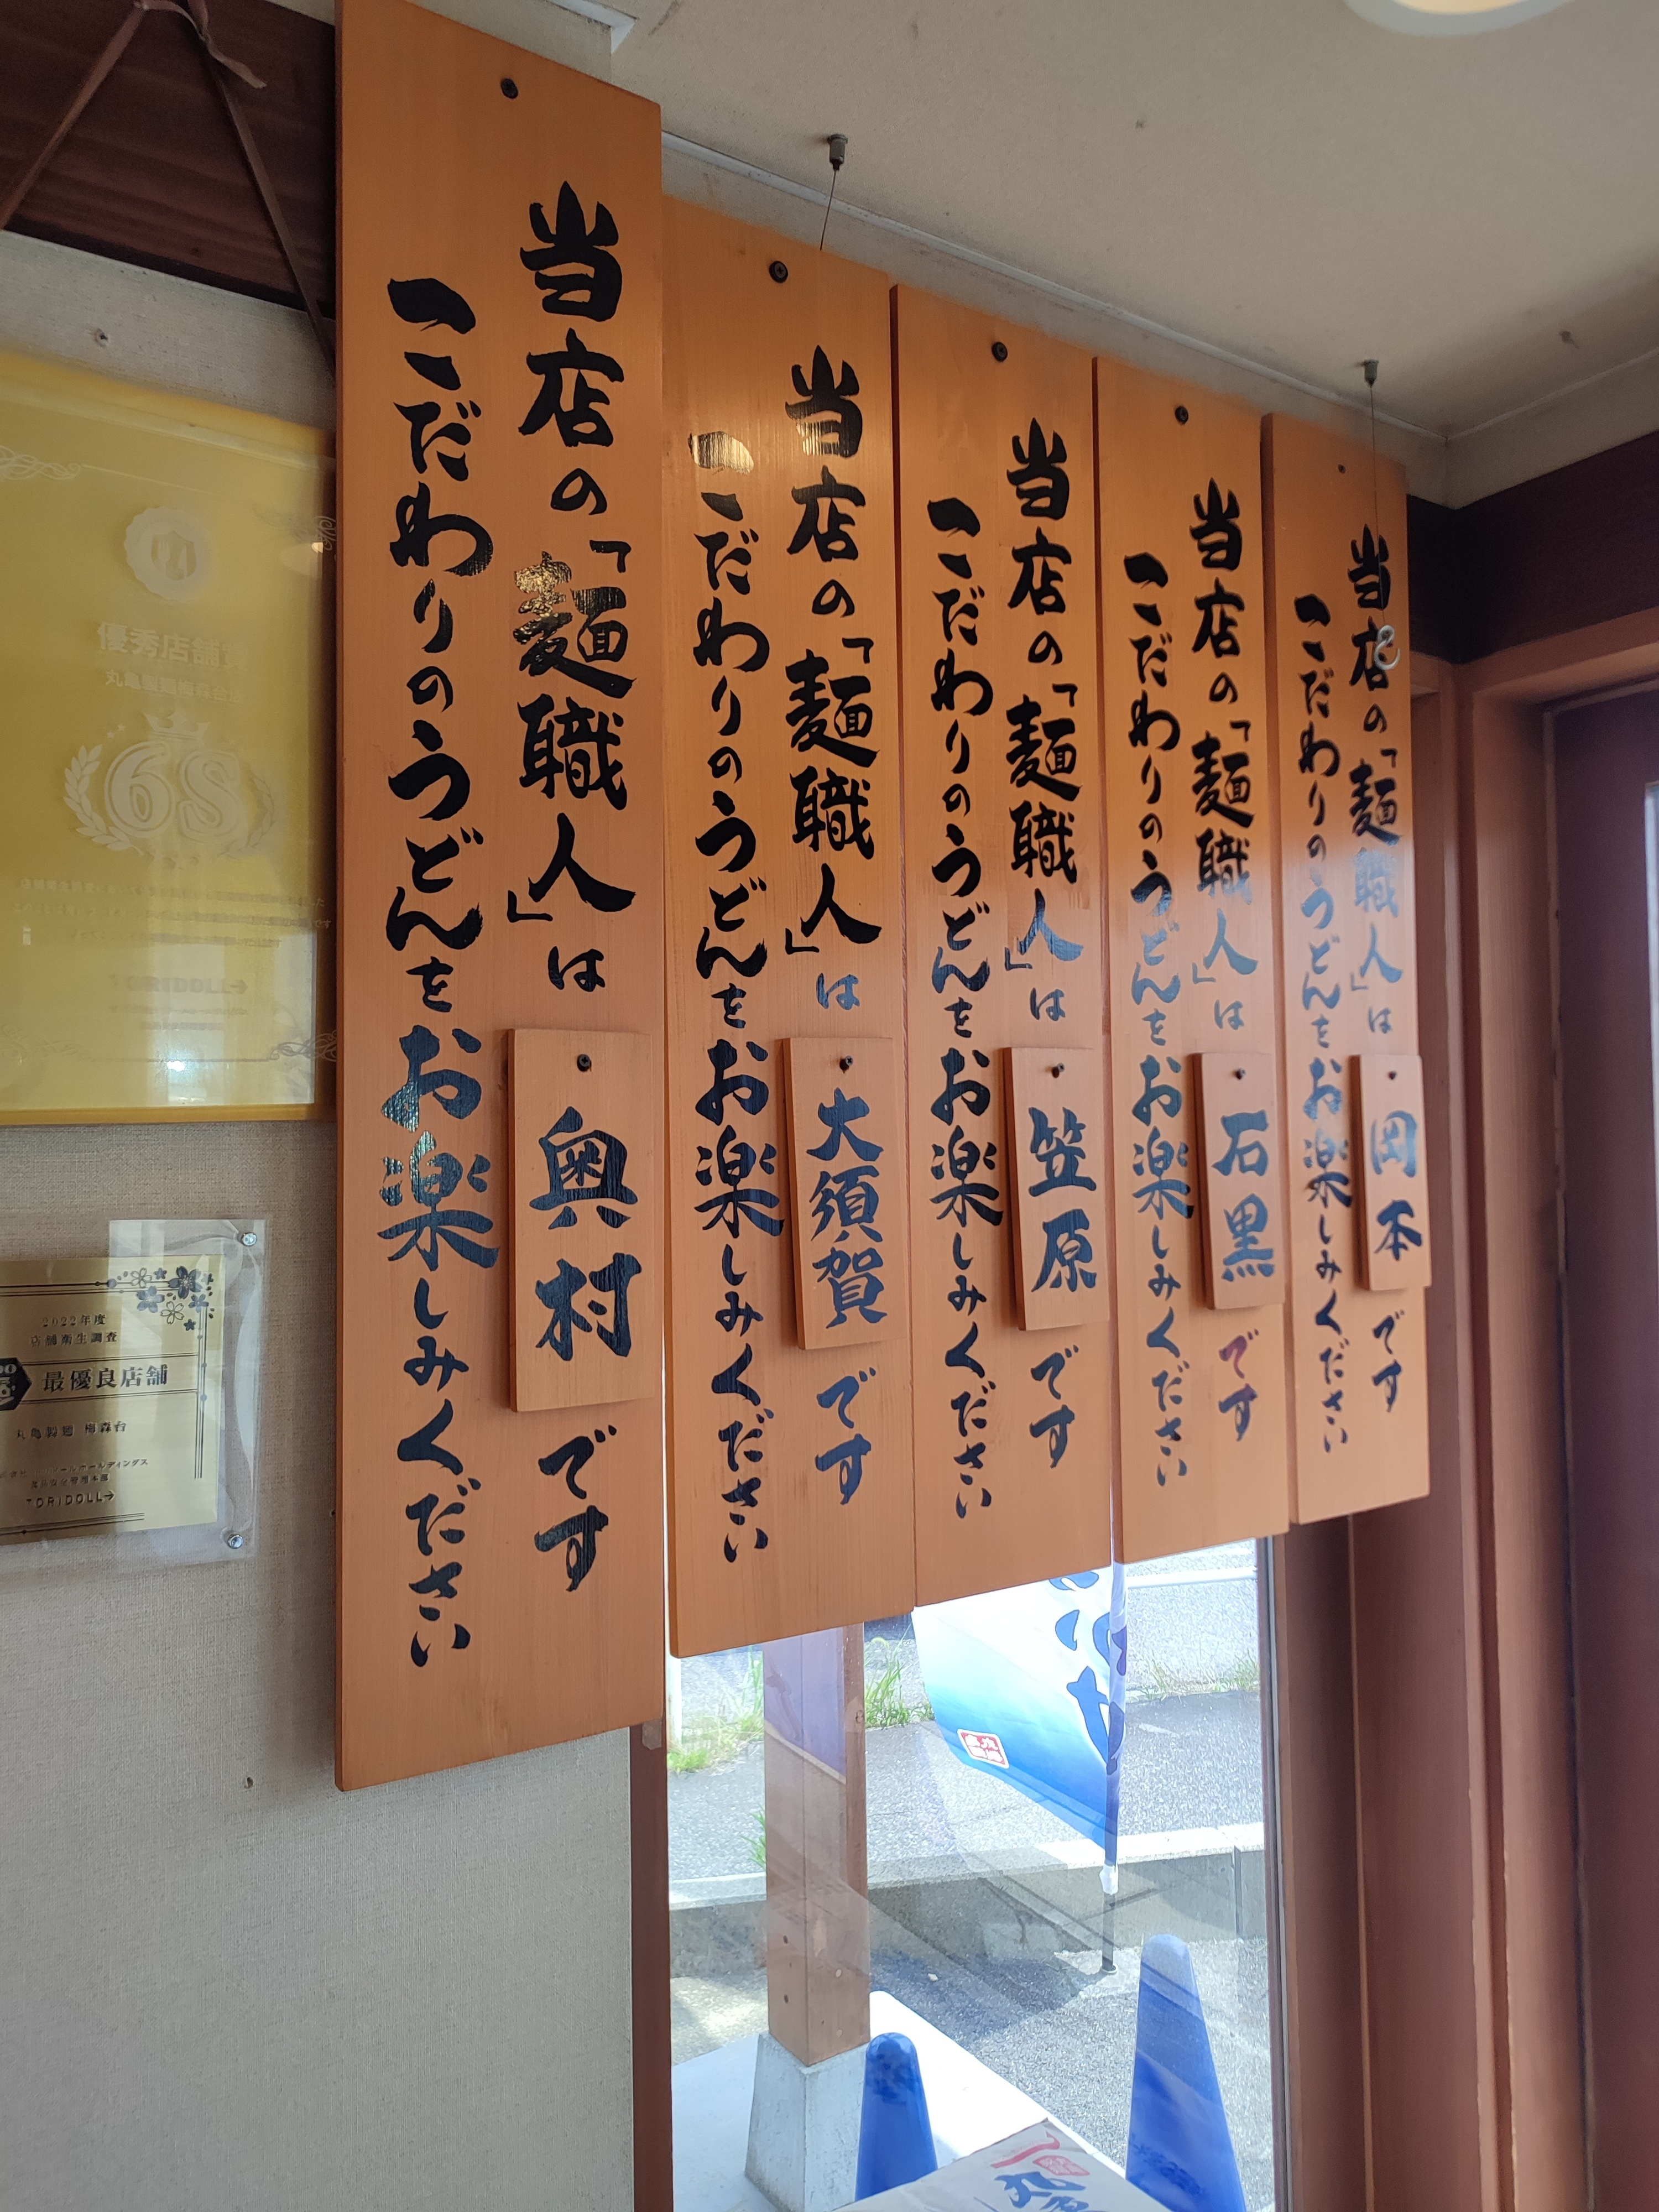 当店の「麺職人」は奥村です
こだわりのうどんをお楽しみください
当店の「麺職人」は大須賀です
こだわりのうどんをお楽しみください
当店の「麺職人」は笠原です
こだわりのうどんをお楽しみください
当店の「麺職人」は石黒です
こだわりのうどんをお楽しみください
当店の「麺職人」は岡本です
こだわりのうどんをお楽しみください
優秀店舗賞
丸亀製麺梅森台店
6S
TORIDOLL
2022年度
店舗衛生調査
最優良店舗
丸亀製麺 梅森台
TORIDOLL